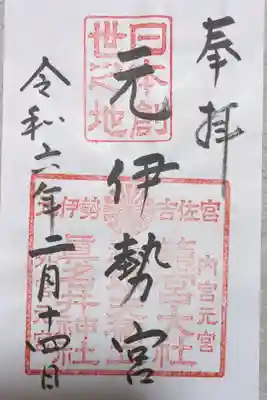 奉拝
日本創
世之地
元伊勢宮
元伊勢 吉佐宮
内宮元宮
籠宮大社
眞名井神社
令和六年二月十四日